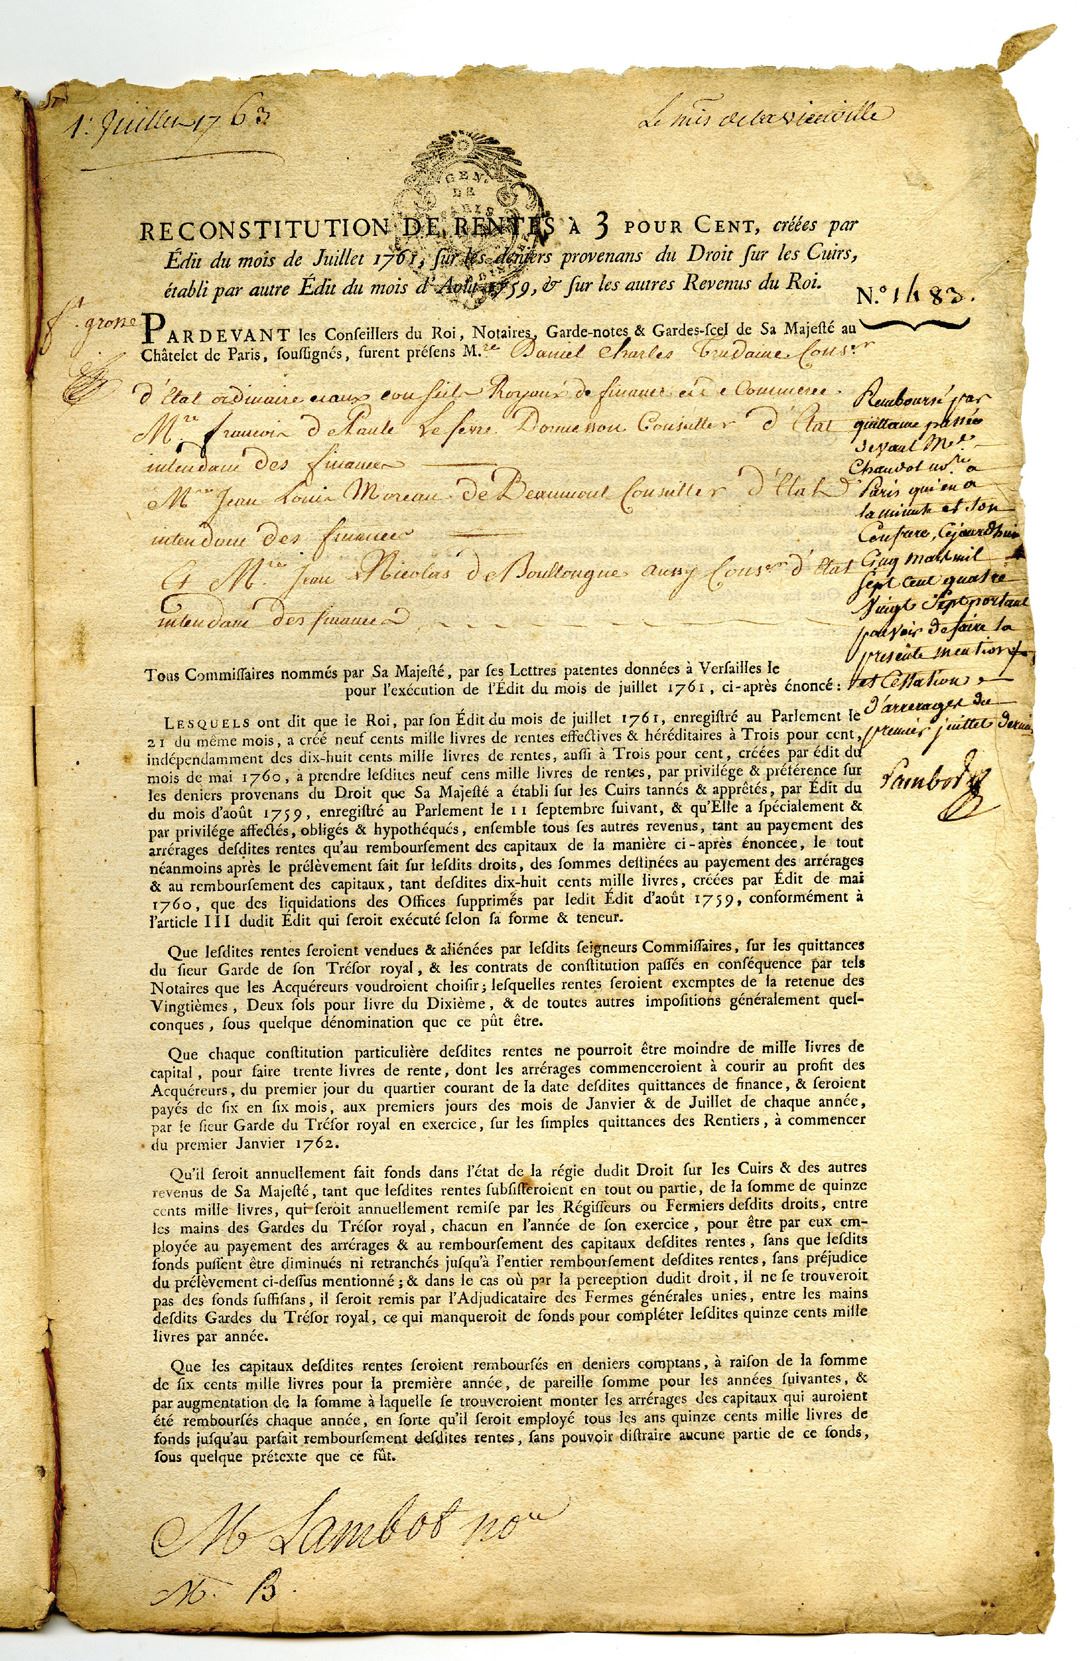 1.r Juillet 1763
Le mis de la vieuville
GEN.
DE
RECONSTITUTION DE RENTES À 3 POUR CENT, créées par
Édit du mois de Juillet 1761, ſur les deniers provenans du Droit ſur les Cuirs,
établi par autre Édit du mois d'Août 1759, & ſur les autres Revenus du Roi.
N.º 1483.
grosse
PARDEVANT les Conſeillers du Roi, Notaires, Garde-notes & Gardes-ſcel de Sa Majeſté au
Châtelet de Paris, ſouſſignés, furent préſens M.re Daniel Charles Trudaine Cons.er
d'État ordinaire et aux conseils Royaux de finance et de Commerce.
M.re francois de Paule Lefevre Dormesson Conseiller d'État
intendant des finances
M.re Jean Louis Moreau de Beaumont Conseiller d'État
intendant des finances
Et M.re Jean Nicolas de Boullongne aussy Cons.er d'État
intendant des finances
Remboursé par
quittance passée
devant M.e
Chaudot no.re a
Paris qui en a
la minute et son
Confrere, Cejourdhui
Cinq mars mil
Sept cent quatre
Vingt Sept portant
pouvoir de faire la
presente mention
et Cessation
d'arrerages du
premier juillet dernier
Lambot
Tous Commiſſaires nommés par Sa Majeſté, par ſes Lettres patentes données à Verſailles le
pour l'exécution de l'Édit du mois de juillet 1761, ci-après énoncé:
LESQUELS ont dit que le Roi, par ſon Édit du mois de juillet 1761, enregiſtré au Parlement le
21 du même mois, a créé neuf cents mille livres de rentes effectives & héréditaires à Trois pour cent,
indépendamment des dix-huit cents mille livres de rentes, auſſi à Trois pour cent, créées par édit du
mois de mai 1760, à prendre leſdites neuf cens mille livres de rentes, par privilége & préférence ſur
les deniers provenans du Droit que Sa Majeſté a établi ſur les Cuirs tannés & apprêtés, par Édit du
du mois d'août 1759, enregiſtré au Parlement le 11 ſeptembre ſuivant, & qu'Elle a ſpécialement &
par privilége affectés, obligés & hypothéqués, enſemble tous ſes autres revenus, tant au payement des
arrérages deſdites rentes qu'au rembourſement des capitaux de la manière ci-après énoncée, le tout
néanmoins après le prélèvement fait ſur leſdits droits, des ſommes deſtinées au payement des arrérages
& au rembourſement des capitaux, tant deſdites dix-huit cents mille livres, créées par Édit de mai
1760, que des liquidations des Offices ſupprimés par ledit Édit d'août 1759, conformément à
l'article III dudit Édit qui ſeroit exécuté ſelon ſa forme & teneur.
Que leſdites rentes ſeroient vendues & aliénées par leſdits ſeigneurs Commiſſaires, ſur les quittances
du ſieur Garde de ſon Tréſor royal, & les contrats de conſtitution paſſés en conſéquence par tels
Notaires que les Acquéreurs voudroient choiſir; leſquelles rentes ſeroient exemptes de la retenue des
Vingtièmes, Deux ſols pour livre du Dixième, & de toutes autres impoſitions généralement quel-
conques, ſous quelque dénomination que ce pût être.
Que chaque conſtitution particulière deſdites rentes ne pourroit être moindre de mille livres de
capital, pour faire trente livres de rente, dont les arrérages commenceroient à courir au profit des
Acquéreurs, du premier jour du quartier courant de la date deſdites quittances de finance, & ſeroient
payés de ſix en ſix mois, aux premiers jours des mois de Janvier & de Juillet de chaque année,
par le ſieur Garde du Tréſor royal en exercice, ſur les ſimples quittances des Rentiers, à commencer
du premier Janvier 1762.
Qu'il ſeroit annuellement fait fonds dans l'état de la régie dudit Droit ſur les Cuirs & des autres
revenus de Sa Majeſté, tant que leſdites rentes ſubſiſteroient en tout ou partie, de la ſomme de quinze
cents mille livres, qui ſeroit annuellement remiſe par les Régiſſeurs ou Fermiers deſdits droits, entre
les mains des Gardes du Tréſor royal, chacun en l'année de ſon exercice, pour être par eux em-
ployée au payement des arrérages & au rembourſement des capitaux deſdites rentes, ſans que leſdits
fonds puſſent être diminués ni retranchés juſqu'à l'entier rembourſement deſdites rentes, ſans préjudice
du prélèvement ci-deſſus mentionné; & dans le cas où par la perception dudit droit, il ne ſe trouveroit
pas des fonds ſuffiſans, il ſeroit remis par l'Adjudicataire des Fermes générales unies, entre les mains
deſdits Gardes du Tréſor royal, ce qui manqueroit de fonds pour compléter leſdites quinze cents mille
livres par année.
Que les capitaux deſdites rentes ſeroient rembourſés en deniers comptans, à raiſon de la ſomme
de ſix cents mille livres pour la première année, de pareille ſomme pour les années ſuivantes, &
par augmentation de la ſomme à laquelle ſe trouveroient monter les arrérages des capitaux qui auroient
été rembourſés chaque année, en ſorte qu'il ſeroit employé tous les ans quinze cents mille livres de
fonds juſqu'au parfait rembourſement deſdites rentes, ſans pouvoir diſtraire aucune partie de ce fonds,
ſous quelque prétexte que ce fût.
M Lambot no.re
M. B.